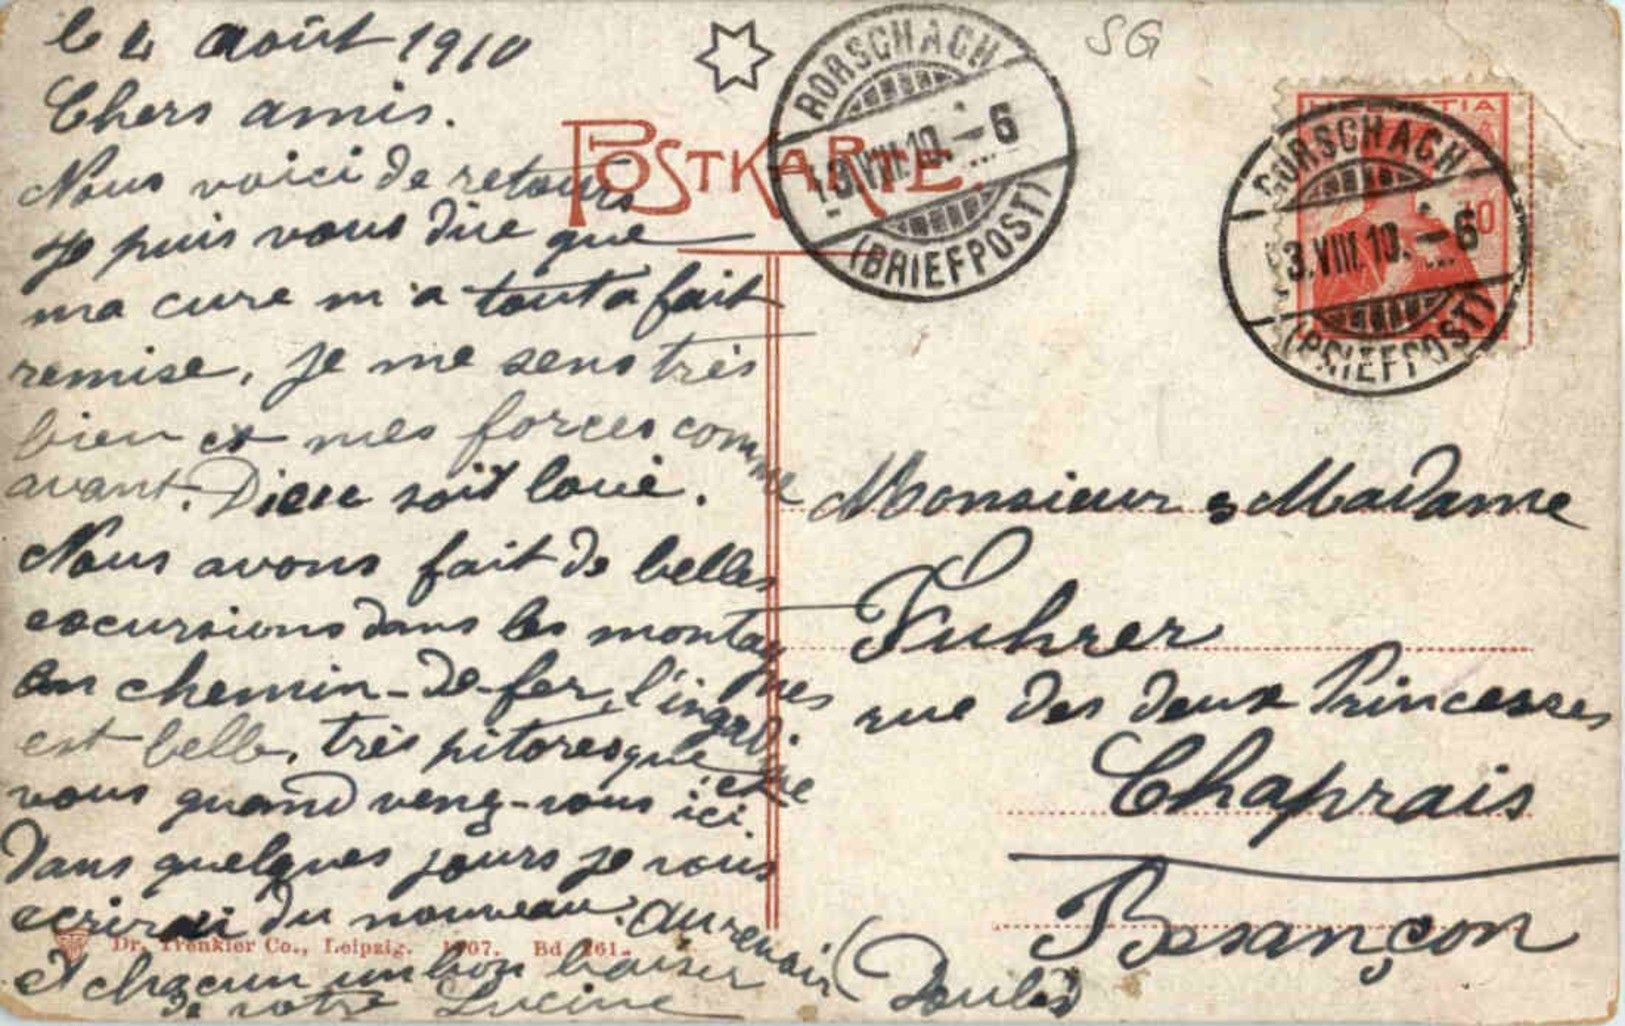 le 4 août 1910
Chers amis.
Nous voici de retour
Je puis vous dire que
ma cure m'a tout a fait
remise, je me sens très
bien et mes forces comme
avant. Dieu soit loué.
Nous avons fait de belles
excursions dans les montagnes
en chemin-de-fer,
est belle, très pitoresque
vous quand venez-vous ici.
Dans quelques jours je vous
ecrirai du nouveau. Au revoir
A chacun un bon baiser
de votre Lucine
POSTKARTE.
RORSCHACH
13.VIII.10. - 6
(BRIEFPOST)
SG
HELVETIA
10
RORSCHACH
13.VIII.10. - 6
(BRIEFPOST)
Monsieur & Madame
Fuhrer
rue des deux Princesses
Chaprais
Besançon
(Doubs)
Dr. Trenkler Co., Leipzig. 1907. Bd 261.